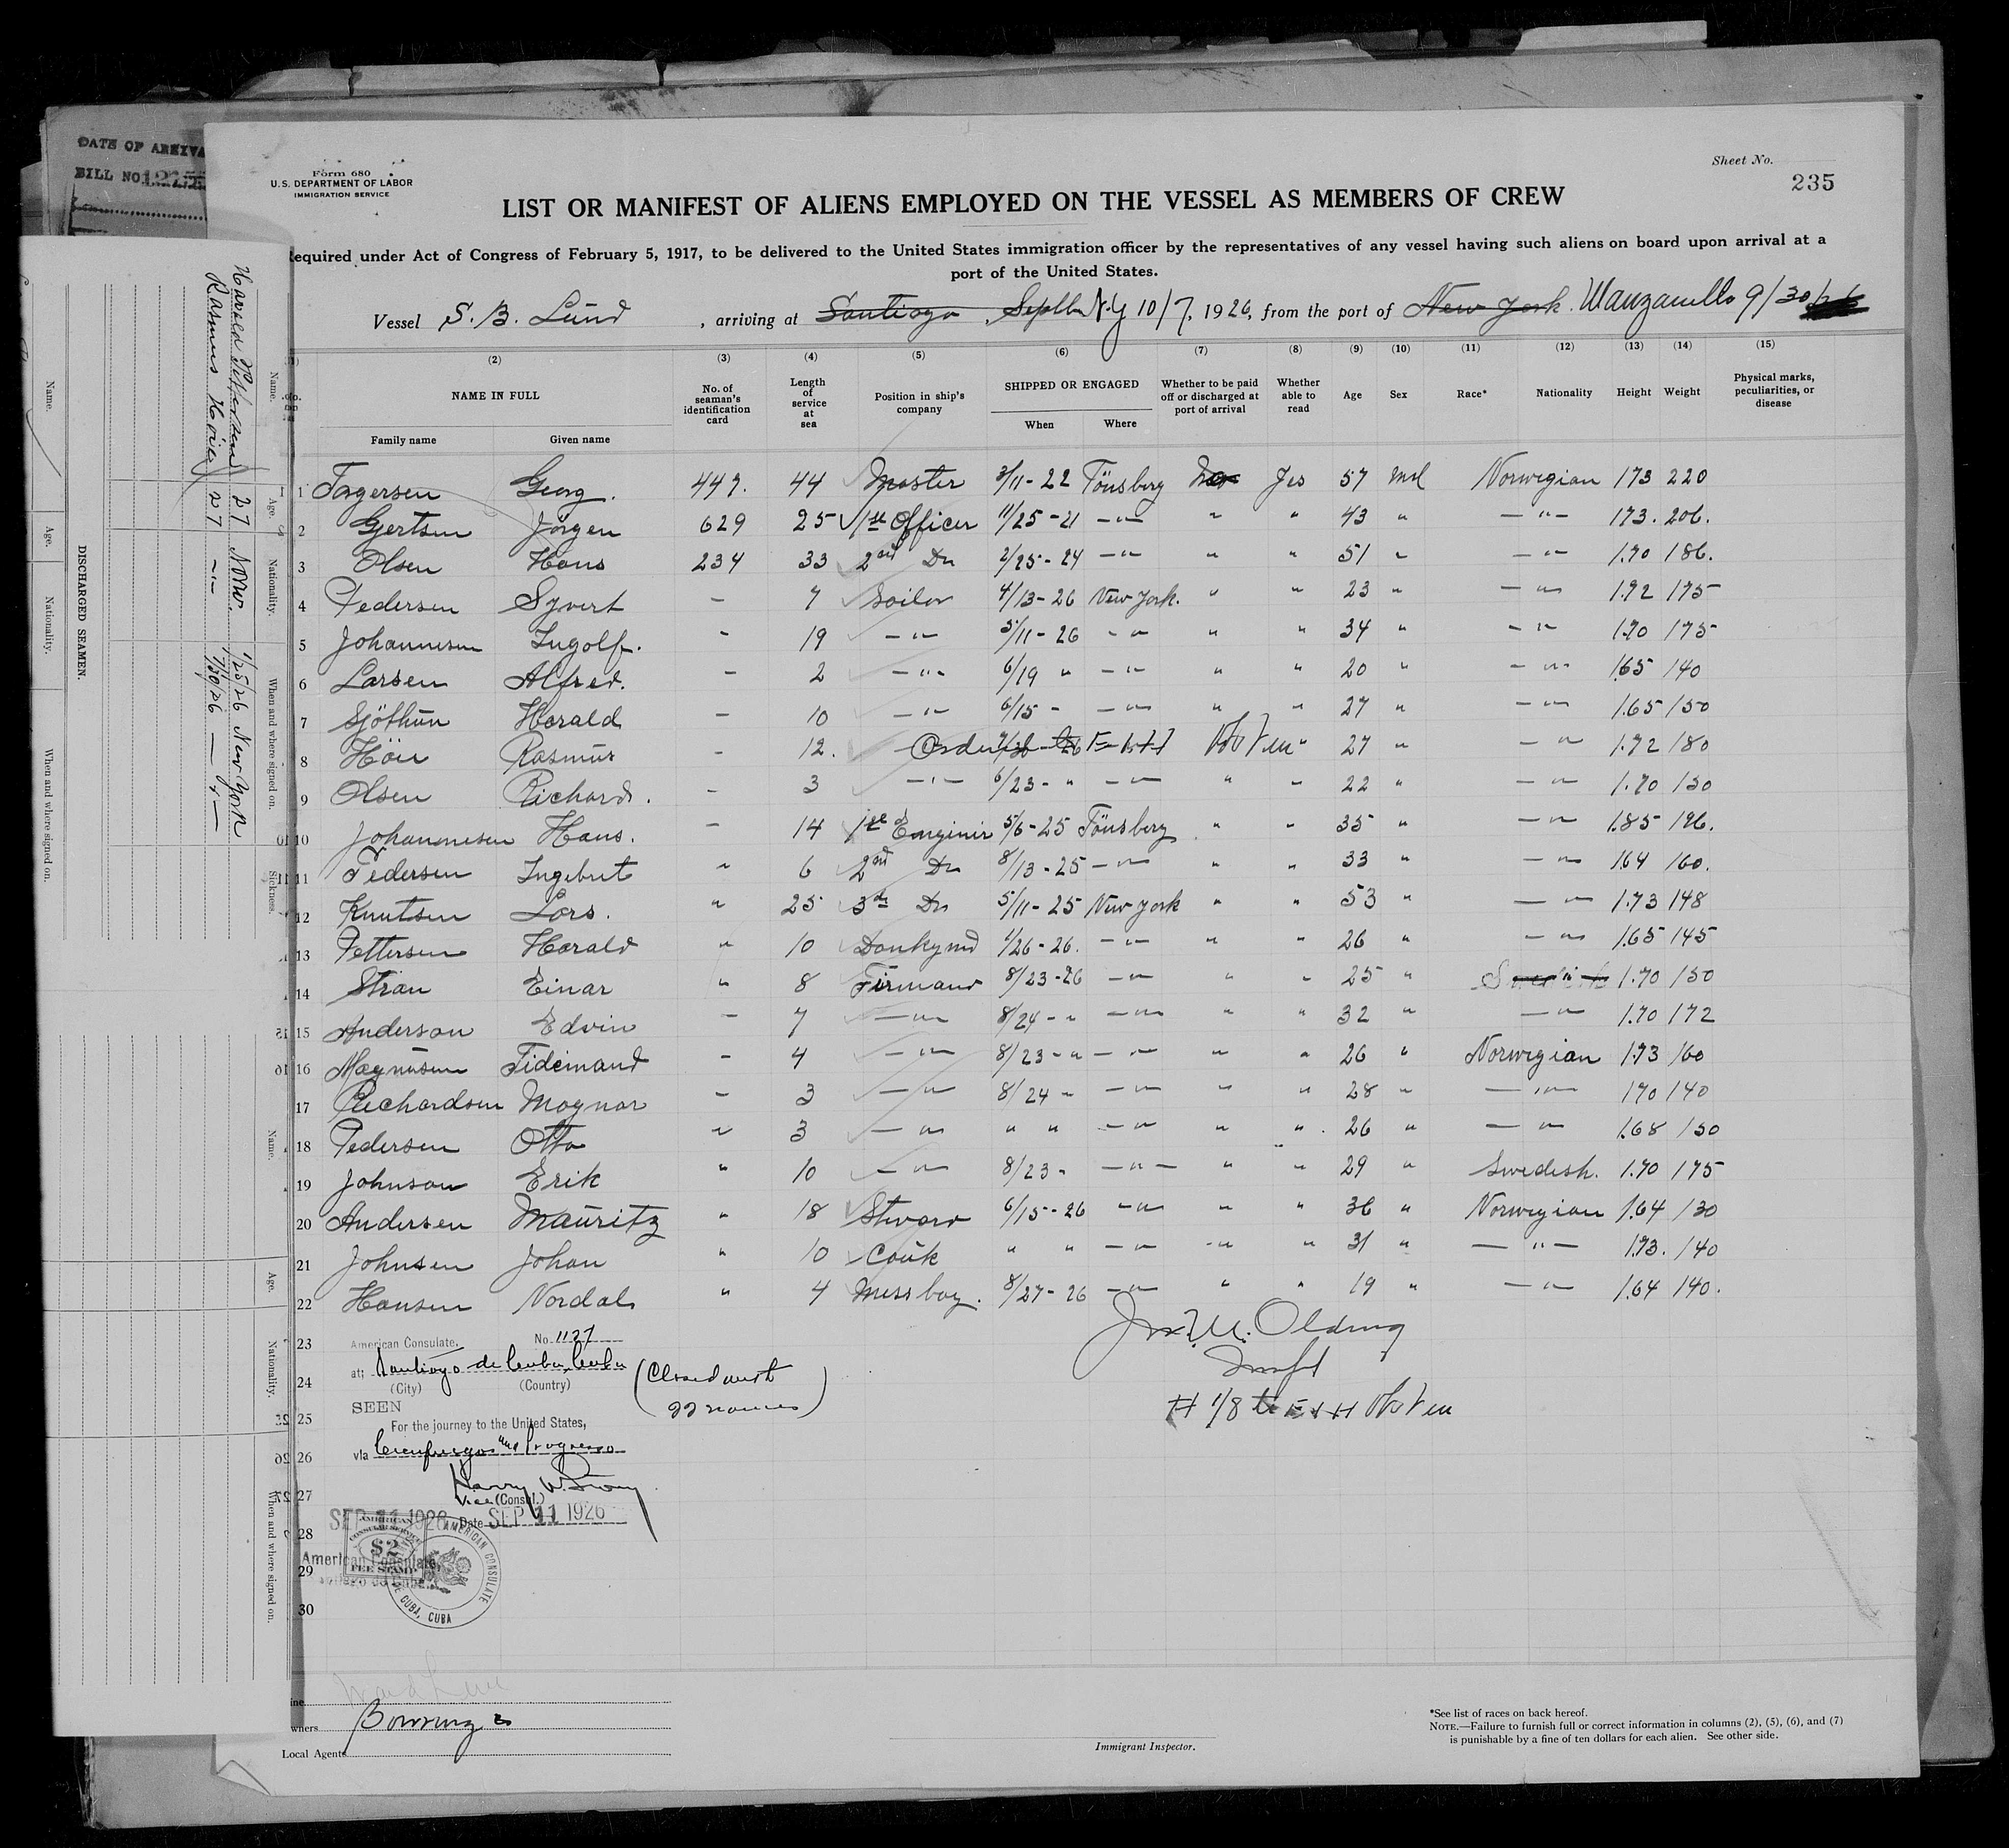 DATE OF ARRIVA
BILL NO. 1275
Form 680
U.S. DEPARTMENT OF LABOR
IMMIGRATION SERVICE
Sheet No.
235
LIST OR MANIFEST OF ALIENS EMPLOYED ON THE VESSEL AS MEMBERS OF CREW
equired under Act of Congress of February 5, 1917, to be delivered to the United States immigration officer by the representatives of any vessel having such aliens on board upon arrival at a
port of the United States.
Vessel S. B. Lund, arriving at Santiago, N.Y 10/7, 1926, from the port of New York. Manzanillo 9/30/26
(2) (3) (4) (5) (6) (7) (8) (9) (10) (11) (12) (13) (14) (15)
NAME IN FULL No. of seaman's identification card Length of service at sea Position in ship's company SHIPPED OR ENGAGED Whether to be paid off or discharged at port of arrival Whether able to read Age Sex Race* Nationality Height Weight Physical marks, peculiarities, or disease
Family name Given name When Where
1 Georg. 447. 44 Master 3/11-22 Tönsberg Yes 57 Mal Norwegian 173 220
2 Gjertsen Jörgen 629 25 1st Officer 11/25-21 -"- " " 43 " -"- 173. 206.
3 Olsen Hans 234 33 2nd Do 2/25-24 -"- " " 51 " -"- 1.70 186.
4 Pedersen Syvert - 7 Sailor 4/13-26 New York. " " 23 " -"- 1.72 175
5 Johannesen Ingolf. - 19 -"- 5/11-26 -"- " " 34 " -"- 1.70 175
6 Larsen Alfred. - 2 -"- 6/19 " -"- " " 20 " -"- 165 140
7 Sjöthun Harald - 10 -"- 6/15 - -"- " " 27 " -"- 1.65 150
8 Höie Rasmus - 12. " 27 " -"- 1.72 180
9 Olsen Richard. - 3 -"- 6/23-" -"- " " 22 " -"- 1.70 150
10 Johannesen Hans. - 14 1st Enginir 5/6-25 Tönsberg " " 35 " -"- 1.85 196.
11 Pedersen Ingebret " 6 2nd Do 8/13-25 -"- " " 33 " -"- 164 160.
12 Knutsen Lars. " 25 3rd Do 5/11-25 New York " " 53 " -"- 1.73 148
13 Pettersen Harald " 10 Donkymd 1/26-26. -"- " " 26 " -"- 1.65 145
14 Stran Einar " 8 Firmand 8/23-26 -"- " " 25 " 1.70 150
15 Anderson Edvin - 7 -"- 8/24-" -"- " " 32 " -"- 1.70 172
16 Magnusen Tidemand - 4 -"- 8/23-" -"- " " 26 " Norwegian 1.73 160
17 Richardsen Magnar - 3 -"- 8/24 " -"- " " 28 " -"- 170 140
18 Pedersen Otto " 3 -"- " " -"- " " 26 " -"- 1.68 150
19 Johnson Erik " 10 -"- 8/23 " -"- " " 29 " Swedish. 1.70 175
20 Andersen Mauritz " 18 Stward 6/15-26 -"- " " 36 " Norwegian 1.64 130
21 Johnsen Johan " 10 Couk " " -"- " " 31 " -"- 1.73. 140
22 Hansen Nordal " 4 Messboy. 8/27-26 -"- " " 19 " -"- 1.64 140.
23
24
25
26
27
28
29
30
American Consulate. No. 1127
at; Santiago de Cuba, Cuba
(City) (Country)
(Closed with
22 names)
SEEN
For the journey to the United States,
via Cienfuegos and Progreso
Harry W.
Vice (Consul.)
SEP 11 1926 Date SEP 11 1926
AMERICAN
CONSULAR SERVICE
$2
FEE STAMP
American Consulate,
AMERICAN CONSULATE
CUBA, CUBA
Olding
Inspt
wners Bowring
Local Agents
Immigrant Inspector.
*See list of races on back hereof.
NOTE.—Failure to furnish full or correct information in columns (2), (5), (6), and (7)
is punishable by a fine of ten dollars for each alien. See other side.
DISCHARGED SEAMEN.
Name. Age. Nationality. When and where signed on. Sickness.
Harald Pettersen 27 Norw. 1/25/26 New York
Rasmus Hoier 27 -"- 7/30/26 -"-
Name. Age. Nationality. When and where signed on.